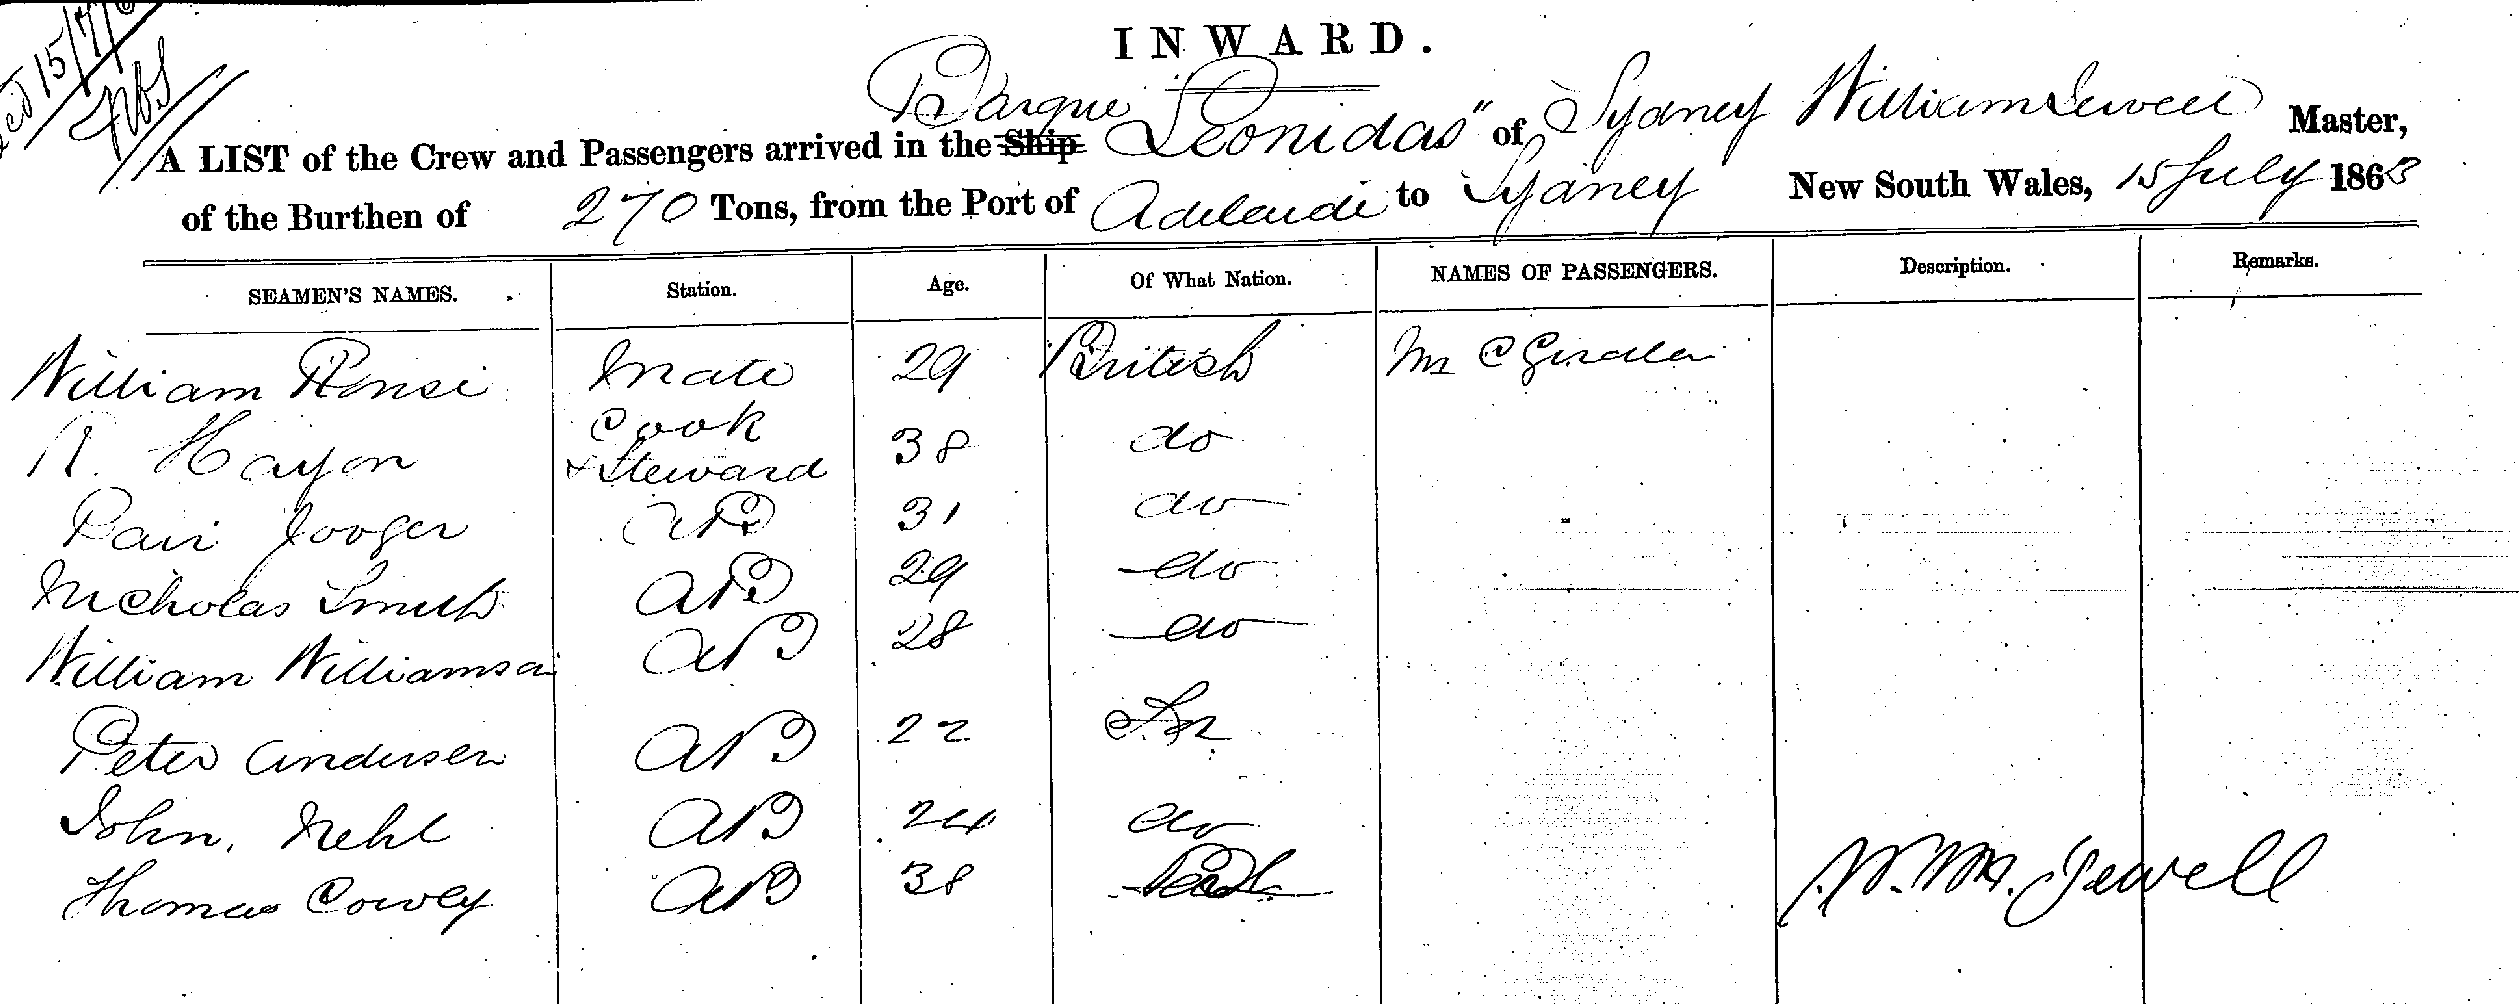 INWARD.
15/7/6
A LIST of the Crew and Passengers arrived in the Ship Barque Leonidas" of Sydney William Jewell Master,
of the Burthen of 270 Tons, from the Port of Adelaide to Sydney New South Wales, 15 July 1863
SEAMEN'S NAMES. Station. Age. Of What Nation. NAMES OF PASSENGERS. Description. Remarks.
William Mate 29 British Mr C
R. Cook & Steward 38 do
AB 31 do
Nicholas Smith AB 29 do
William Williamson AB 28 do
Peter Andersen AB 22
John, Nehl AB 24 do
Thomas Cowley AB 38
W. Wm. Jewell